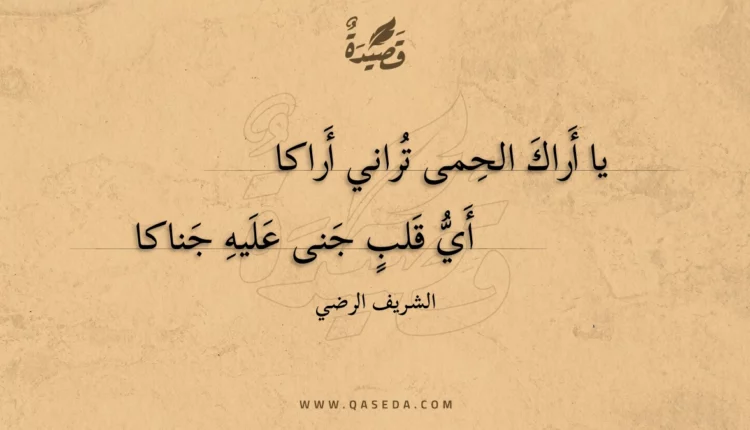 قَصِيْدَةٌ
يا أَراكَ الحِمى تُراني أَراكا
أَيُّ قَلبٍ جَنى عَلَيهِ جَناكا
الشريف الرضي
WWW.QASEDA.COM